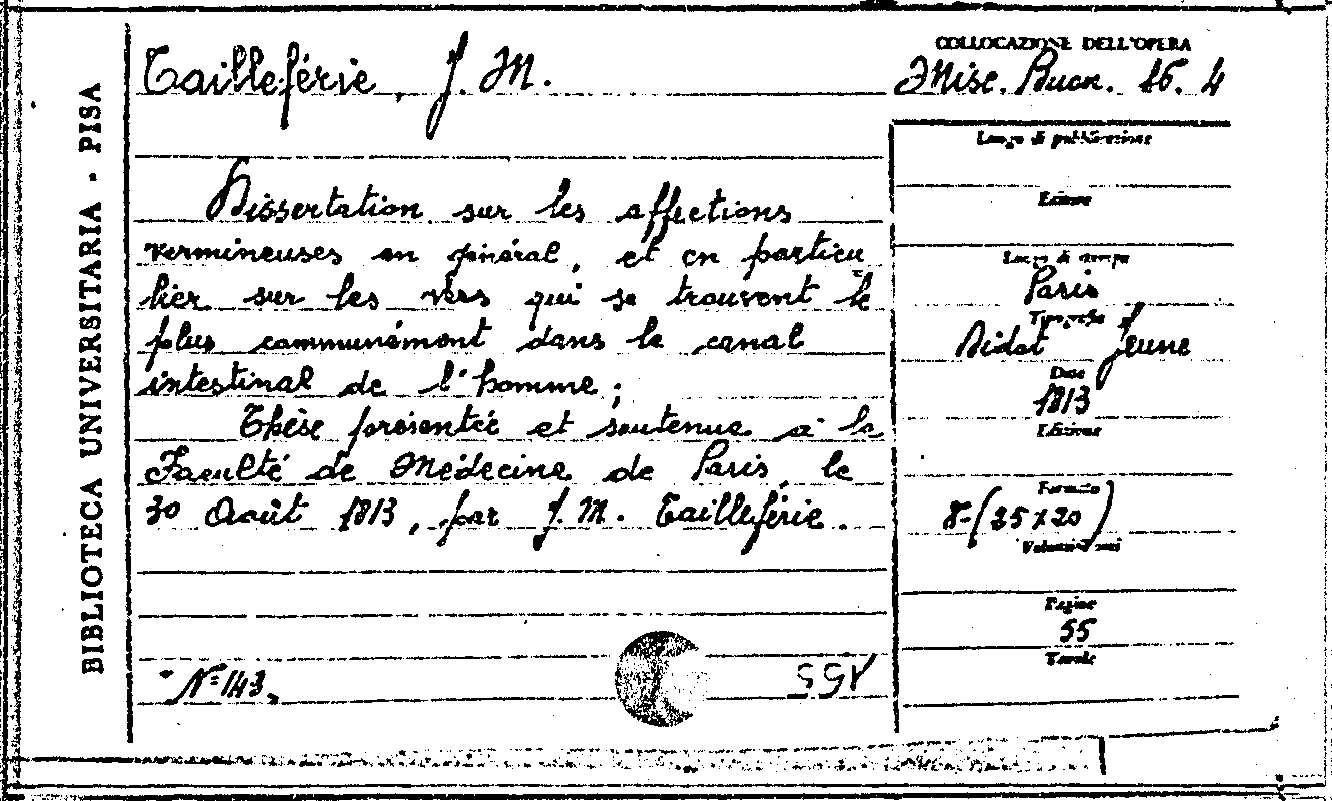 BIBLIOTECA UNIVERSITARIA - PISA
Tailleférie, J. M.
Dissertation sur les affections
vermineuses en général, et en particu
lier sur les vers qui se trouvent le
plus communément dans le canal
intestinal de l'homme;
Thèse présentée et soutenue a la
Faculté de Médecine de Paris, le
30 Août 1813, par J. M. Tailleférie.
Nº 143.
COLLOCAZIONE DELL'OPERA
Misc. Buon. 16. 4
Luogo di pubblicazione
Editore
Luogo di stampa
Paris
Tipografia
Didot Jeune
Data
1813
Edizione
Formato
8-(25x20)
Volumi
Pagine
55
Tavole